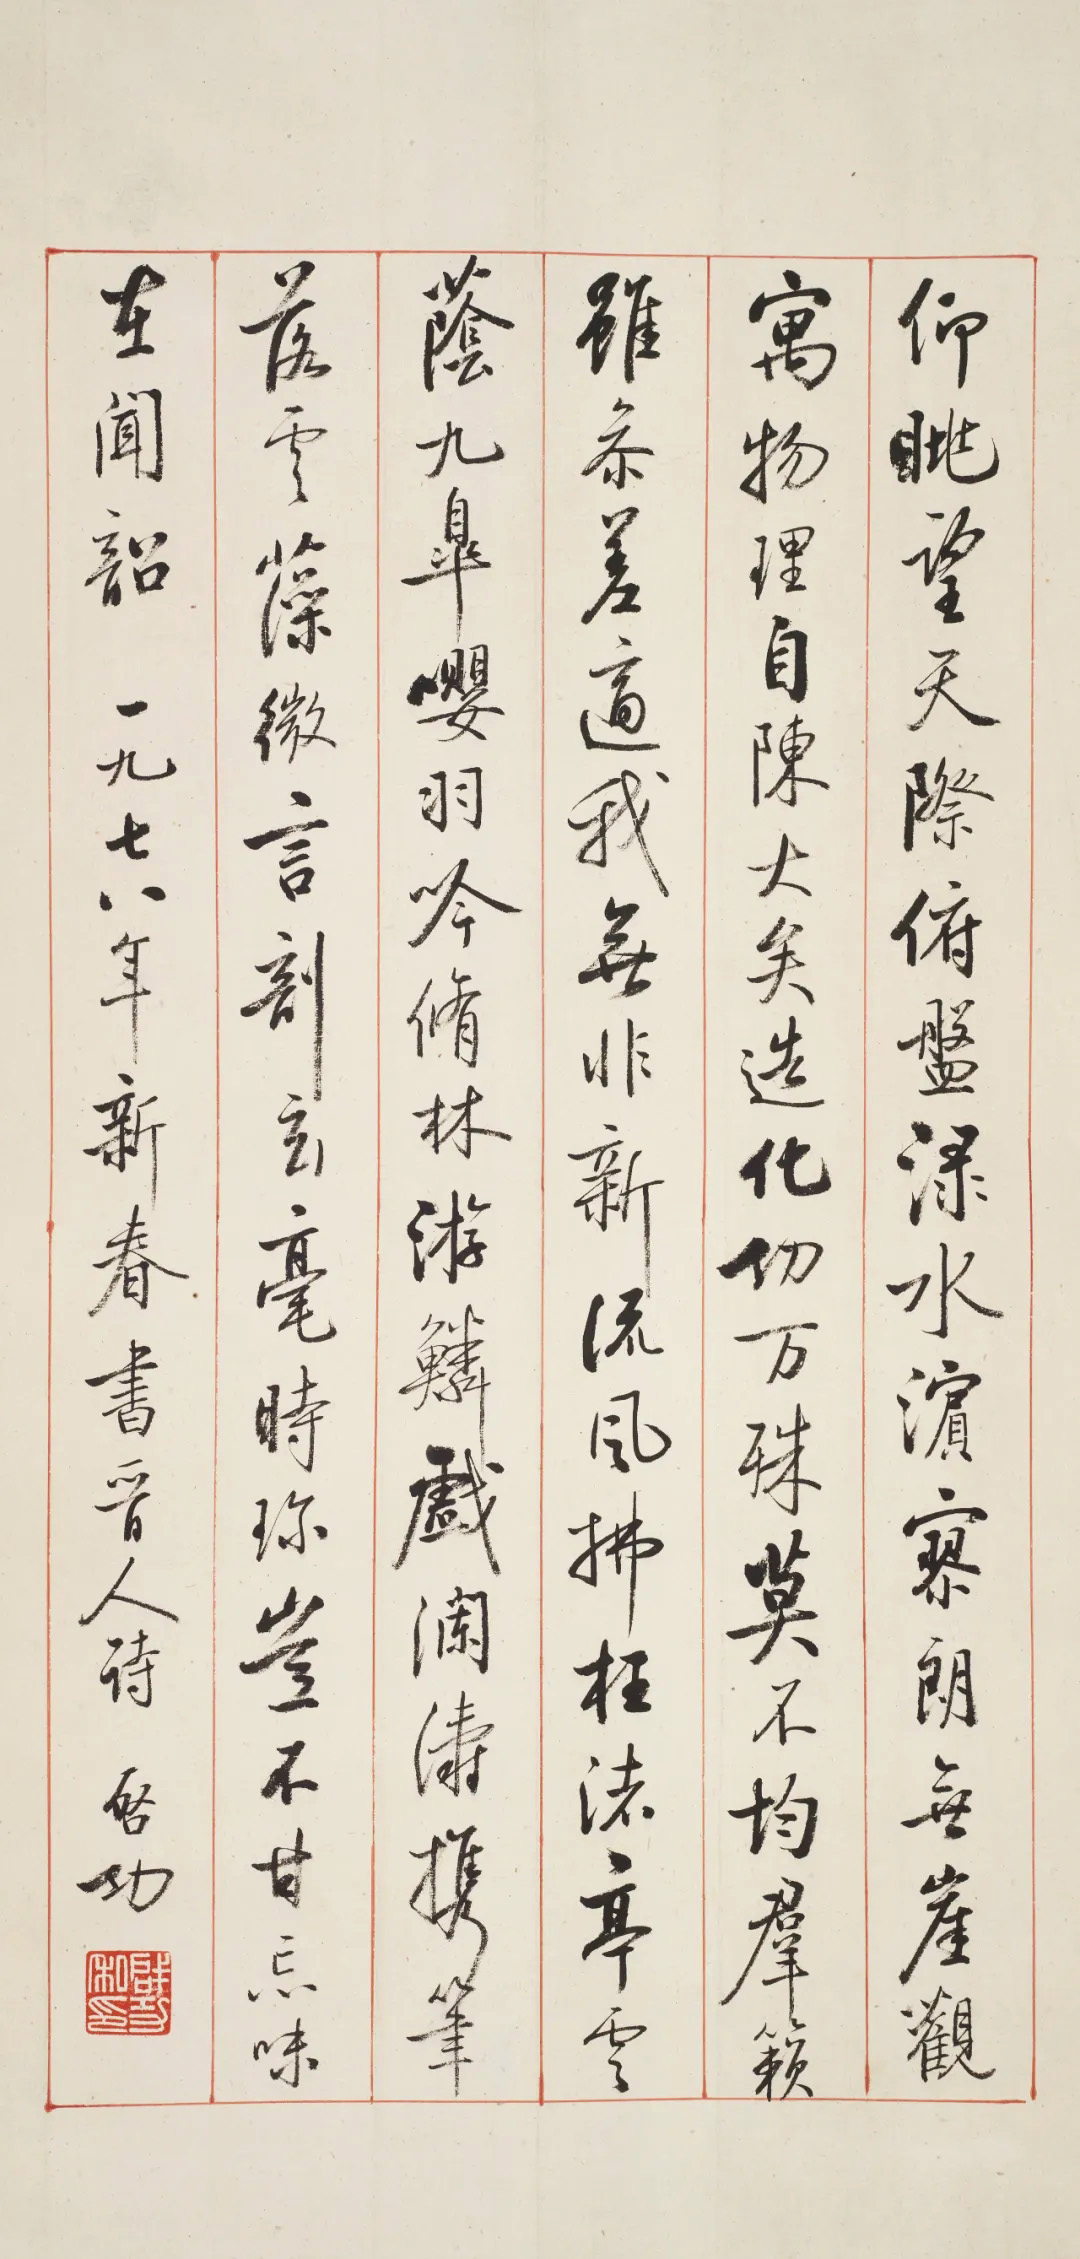 仰眺望天際俯盤渌水濵寥朗無崖觀
寓物理自陳大矣造化功万殊莫不均羣籟
雖叅差適我無非新流風拂枉渚亭雲
蔭九皐嚶羽吟脩林游鱗戲瀾濤携筆
落雲藻微言剖玄毫時珍豈不甘忘味
在聞韶 一九七八年新春書晋人詩 啓功